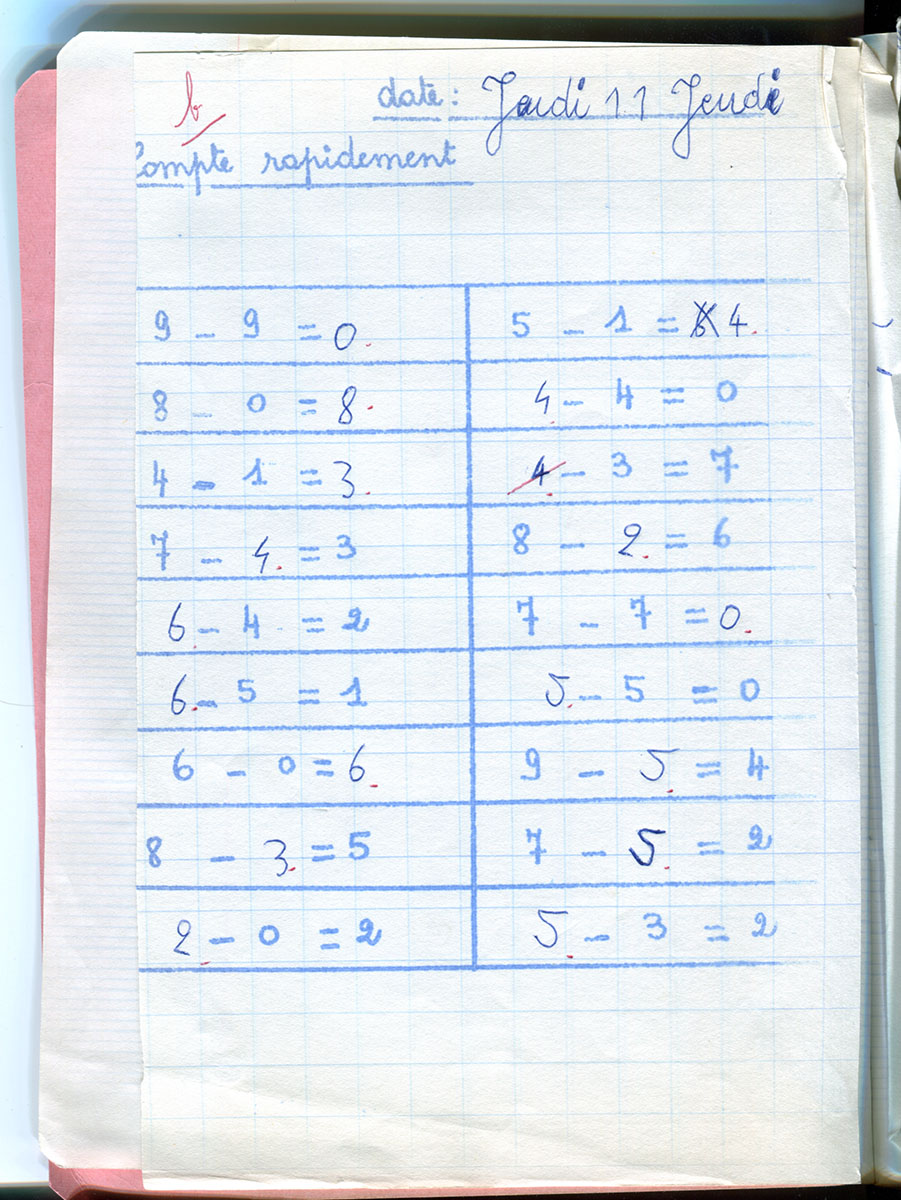 b
date: Jeudi 11 Jeudi
Compte rapidement
9 - 9 = 0
5 - 1 = 4
8 - 0 = 8
4 - 4 = 0
4 - 1 = 3
4 - 3 = 7
7 - 4 = 3
8 - 2 = 6
6 - 4 = 2
7 - 7 = 0
6 - 5 = 1
5 - 5 = 0
6 - 0 = 6
9 - 5 = 4
8 - 3 = 5
7 - 5 = 2
2 - 0 = 2
5 - 3 = 2